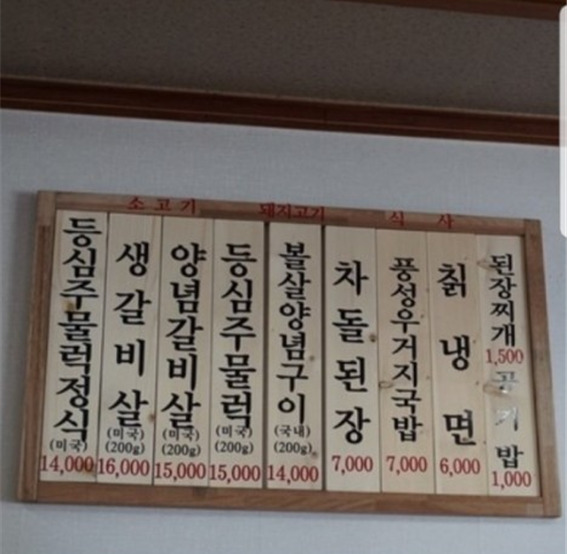 소고기
돼지고기
식사
등심주물럭정식
(미국)
14,000
생갈비살
(미국)
(200g)
16,000
양념갈비살
(미국)
(200g)
15,000
등심주물럭
(미국)
(200g)
15,000
볼살양념구이
(국내)
(200g)
14,000
차돌된장
7,000
풍성우거지국밥
7,000
칡냉면
6,000
된장찌개
1,500
공기밥
1,000